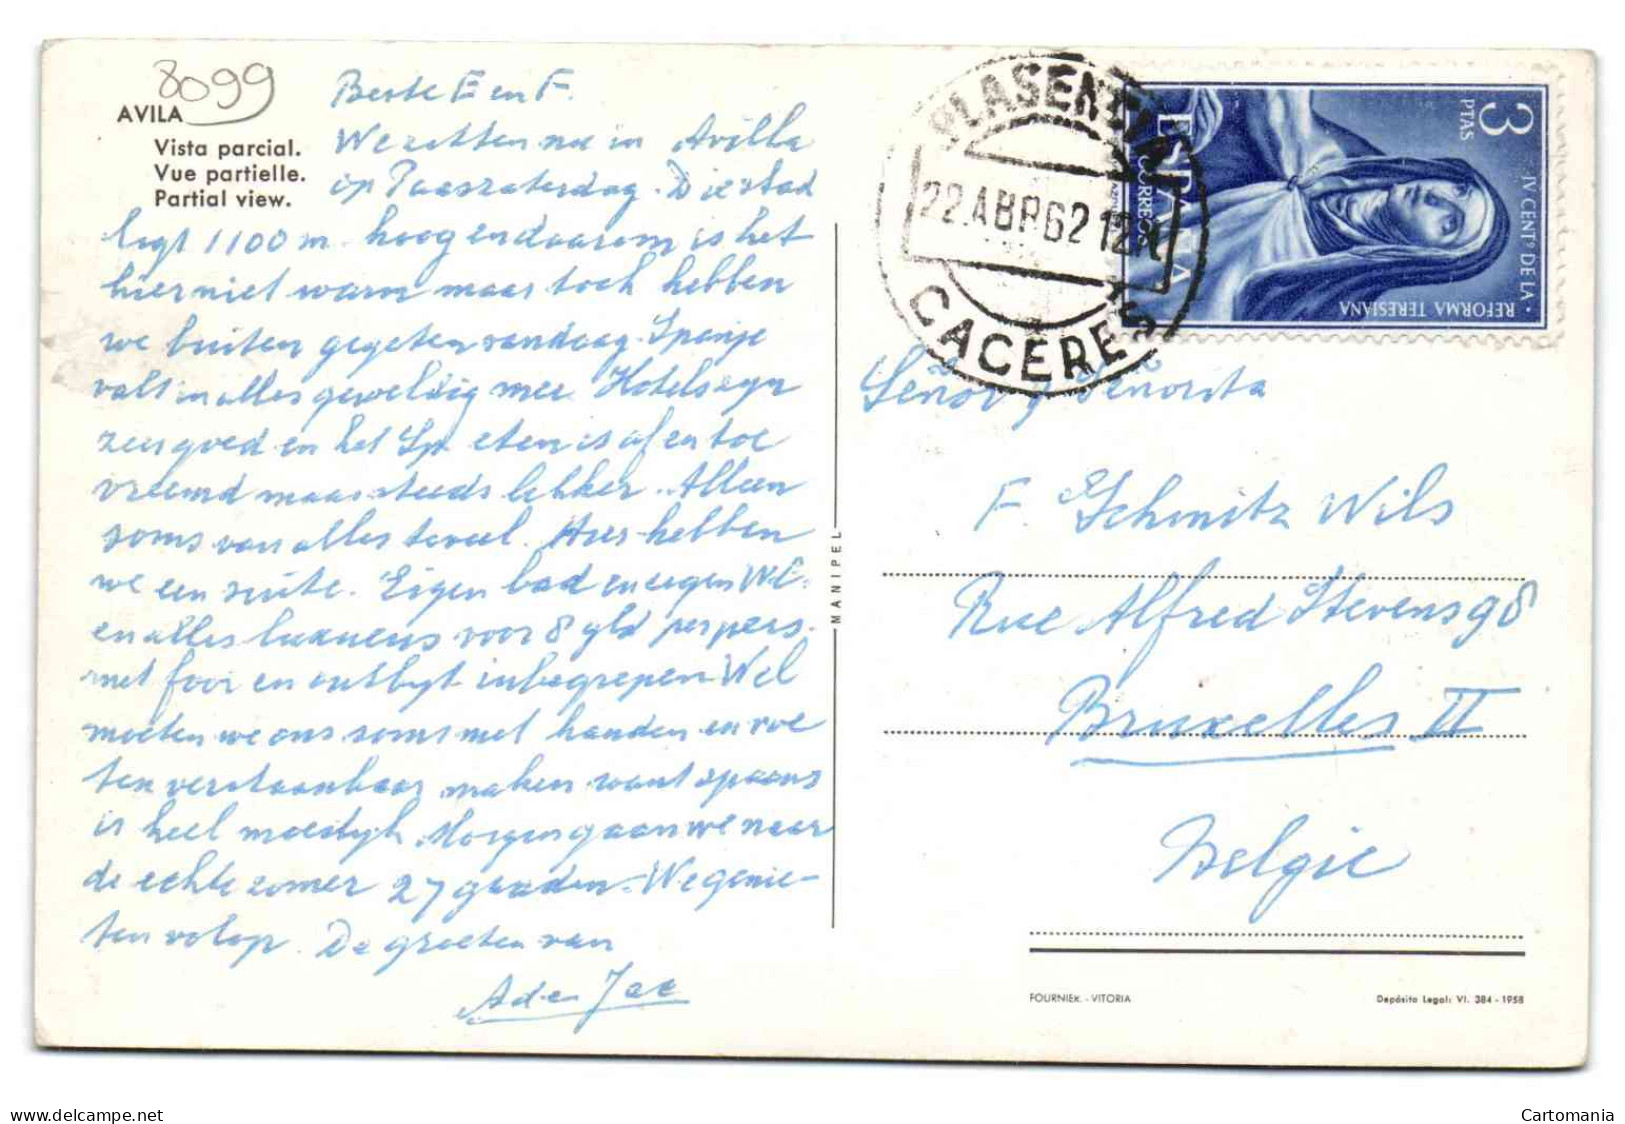 8099
AVILA
Vista parcial.
Vue partielle.
Partial view.
Beste E en F.
We zitten nu in Avilla
op Paaszaterdag. Die stad
ligt 1100 m. hoog en daarom is het
hier niet warm maar toch hebben
we buiten gegeten vandaag. Spanje
valt in alles geweldig mee. Hotels zijn
zeer goed en het Sp. eten is af en toe
vreemd maar steeds lekker. Alleen
soms van alles teveel. Hier hebben
we een suite. Eigen bad en eigen WC.
en alles luxueus voor 8 gld per pers.
met fooi en ontbijt inbegrepen. Wel
moeten we ons soms met handen en voe
ten verstaanbaar maken want spaans
is heel moeilijk. Morgen gaan we naar
de echte zomer 27 graden. We genie-
ten volop. De groeten van
Ad en Jae
MANIPEL
PLASENCIA
22.ABR62 12
CACERES
3 PTAS
ESPAÑA
CORREOS
IV CENTº DE LA
REFORMA TERESIANA
Señor y Señorita
F. Schmitz Wils
Rue Alfred Stevens 98
Bruxelles II
België
FOURNIER. - VITORIA
Depósito Legal: VI. 384 - 1958
Delcampe.net
Cartomania